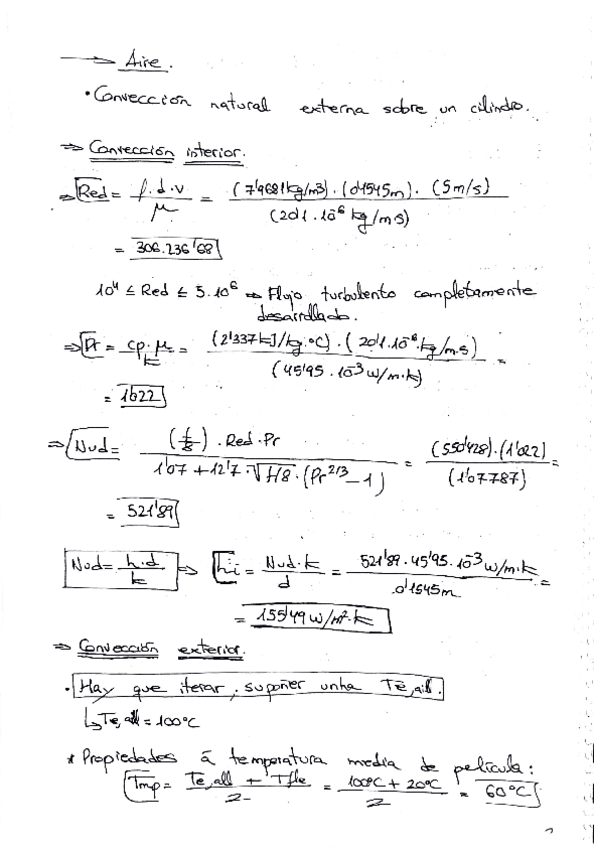 → Aire.
• Convección natural externa sobre un cilindro.
⇒ Convección interior.
⇒ Red = ρ·d·v / μ = (7'9681 kg/m3)·(0'1545m)·(5m/s) / (20'1·10⁻⁶ kg/m·s)
= 306.236'68
10⁴ ≤ Red ≤ 5·10⁶ ⇒ Flujo turbulento completamente
desarrollado.
⇒ Pr = cp·μ / k = (2'337kJ/kg·°C)·(20'1·10⁻⁶ kg/m·s) / (45'95·10⁻³ w/m·k) =
= 1'022
⇒ Nud = (f/8)·Red·Pr / 1'07 + 12'7·√f/8·(Pr^2/3 − 1) = (550'428)·(1'022) / (1'07787) =
= 521'89
Nud = h·d / k ⇒ hi = Nud·k / d = 521'89·45'95·10⁻³ w/m·k / 0'1545m =
= 155'49 w/m²·k
⇒ Convección exterior.
• Hay que iterar, supoñer unha Te,ail.
↳ Te,all = 100°C
* Propiedades á temperatura media de película:
Tmp = Te,all + Tfle / 2 = 100°C + 20°C / 2 = 60°C